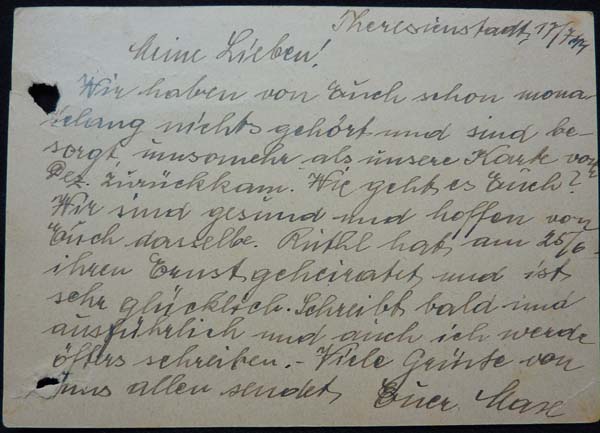 Theresienstadt, 17/7.44
Meine Lieben!
Wir haben von Euch schon mona-
telang nichts gehört und sind be-
sorgt, umsomehr als unsere Karte vom
Dez. zurückkam. Wie geht es Euch?
Wir sind gesund und hoffen von
Euch dasselbe. Ruthl hat am 25/6.
ihren Ernst geheiratet und ist
sehr glücklich. Schreibt bald und
ausführlich und auch ich werde
öfters schreiben. - Viele Grüsse von
uns allen sendet Euer Max